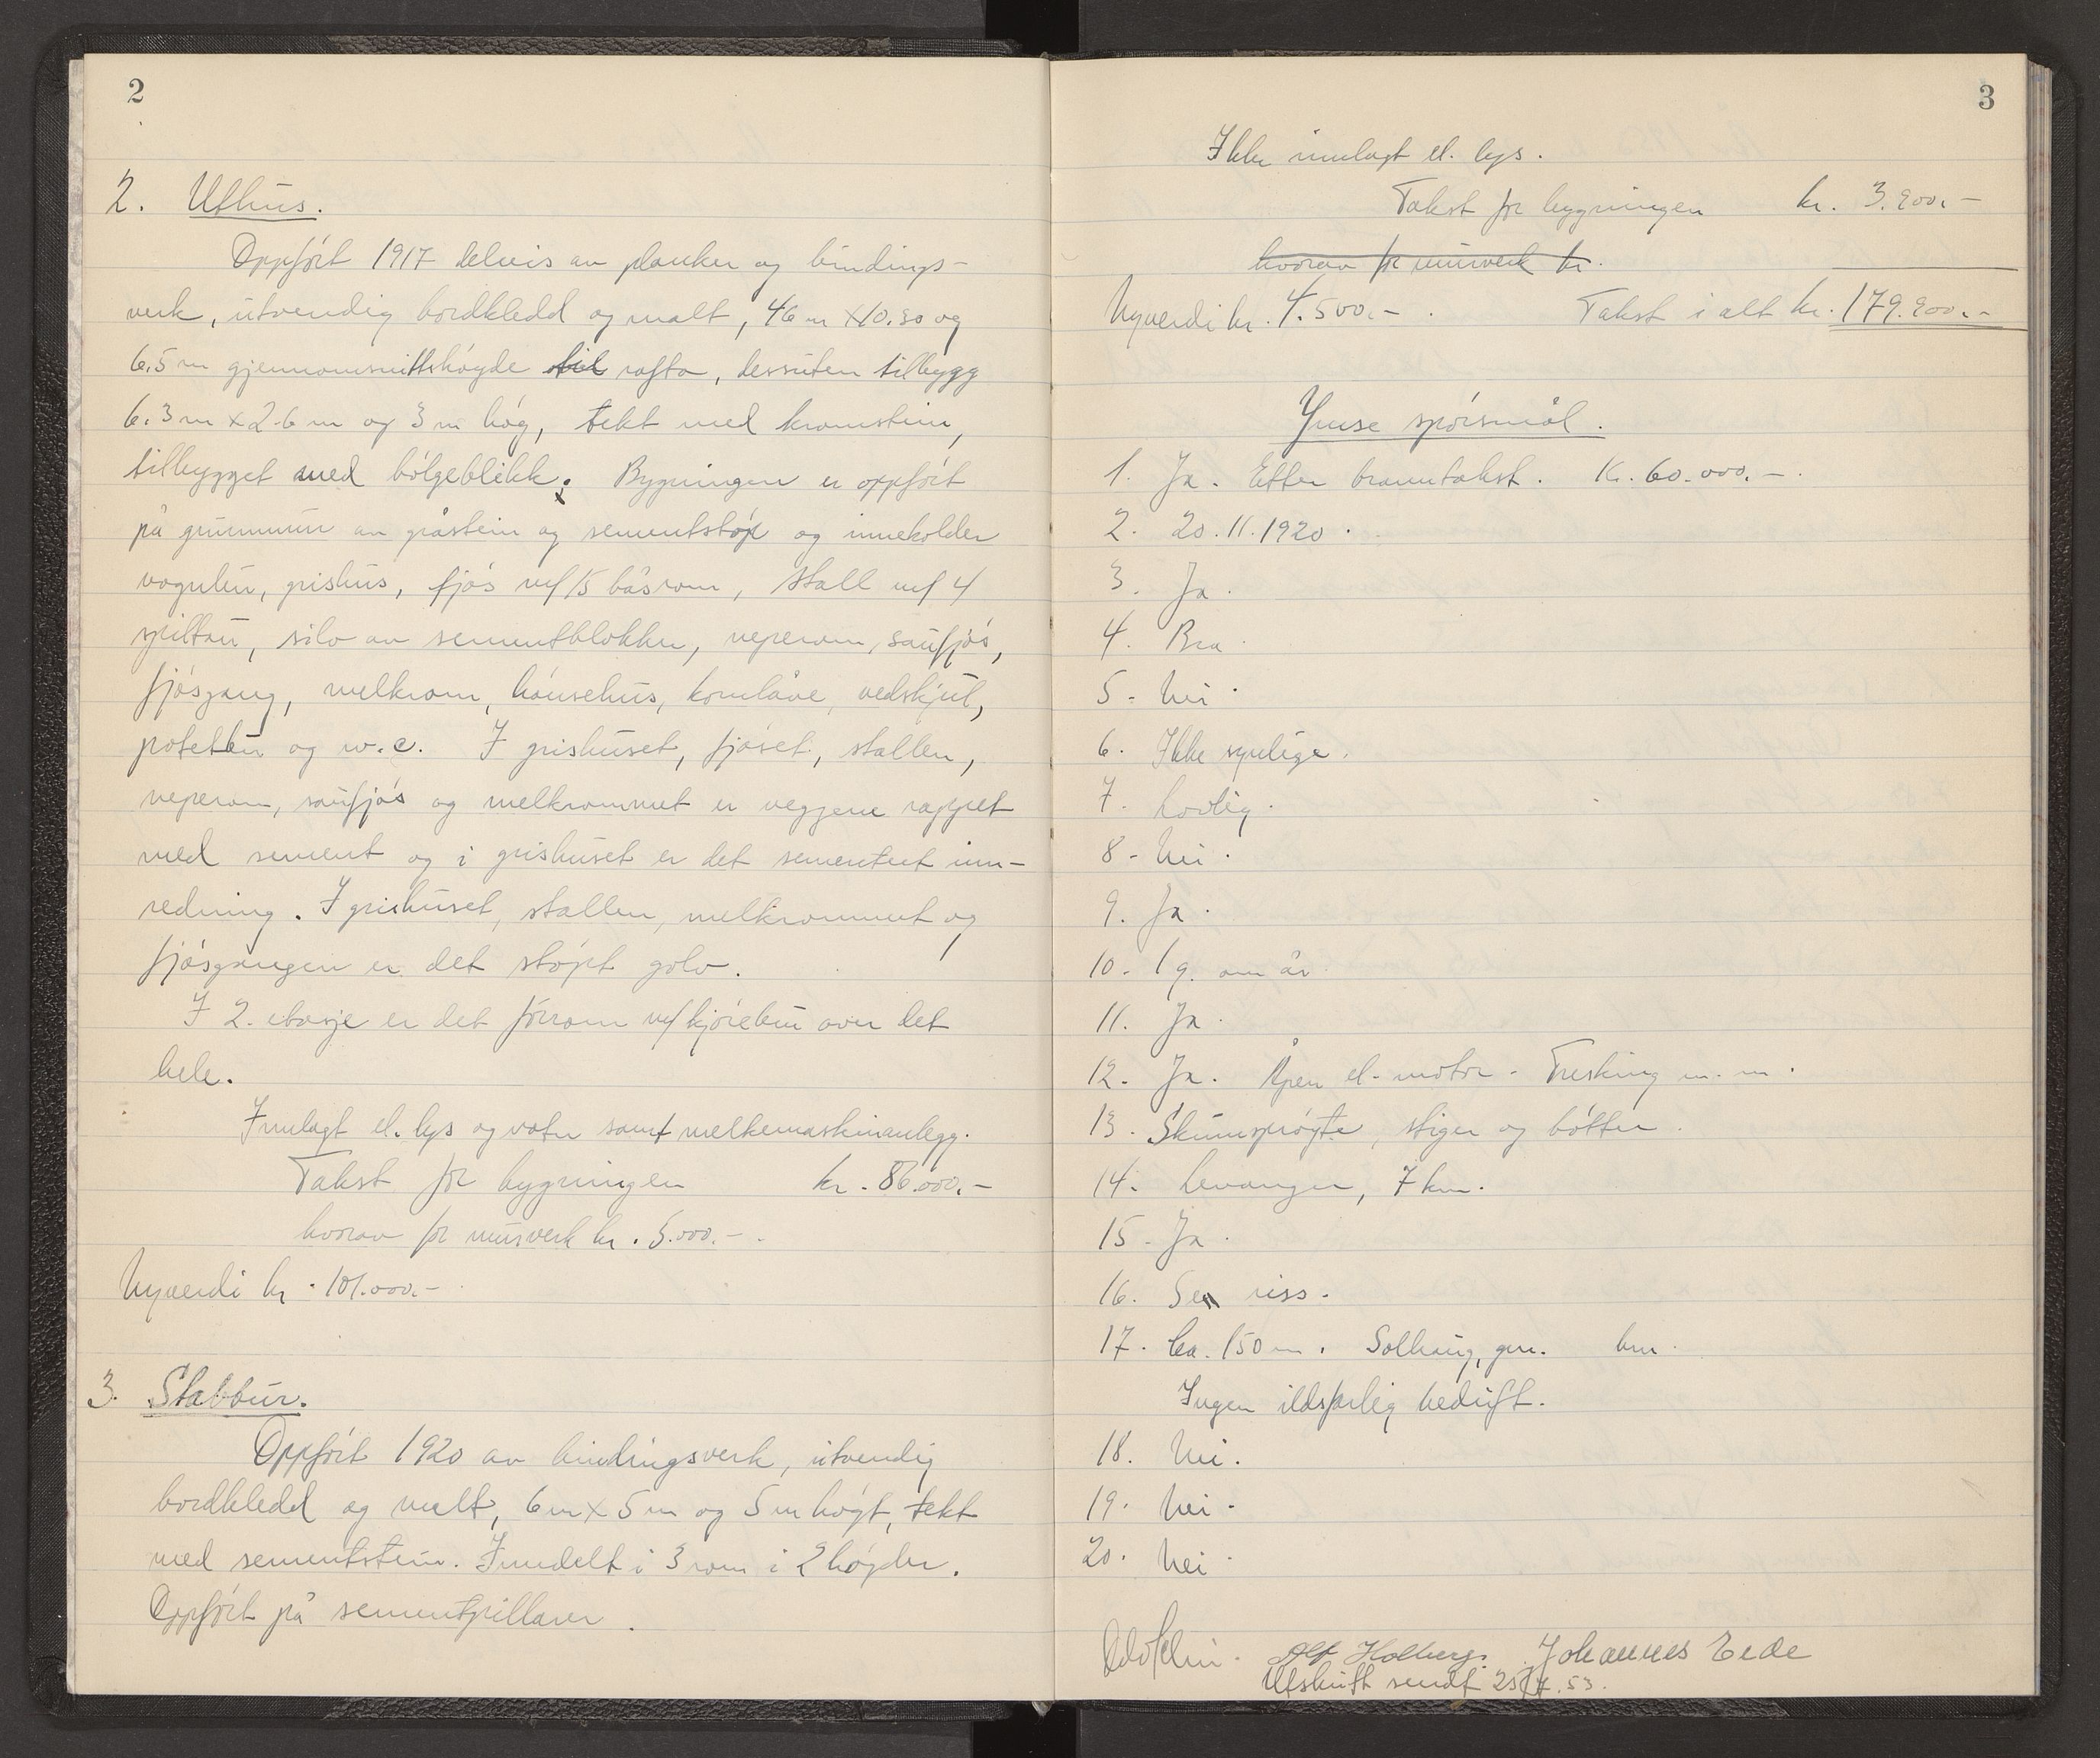 2
2. Uthus.
Oppført 1917 delvis av planker og bindings-
verk, utvendig bordkledd og malt, 46 m x 10.30 og
6.5 m gjennomsnittshøyde til rafta, dessuten tilbygg
6.3 m x 2.6 m og 3 m høg, tekt med kromstein,
tilbygget med bølgeblikk. Bygningen er oppført
på grunnmur av gråstein og sementstøp og inneholder
vognbu, grishus, fjøs m/ 15 båsrom, stall m/ 4
spiltau, silo av sementblokker, neperom, saufjøs,
fjøsgang, melkrom, hønsehus, kornlåve, vedskjul,
potetbu og w.c. I grishuset, fjøset, stallen,
neperom, saufjøs og melkrommet er veggene rappet
med sement og i grishuset er det sementert inn-
redning. I grishuset, stallen, melkrommet og
fjøsgangen er det støpt golv.
I 2. etasje er det fôrrom m/ kjørebru over det
hele.
Innlagt el. lys og vatn samt melkemaskinanlegg.
Takst for bygningen kr. 86.000.-
hvorav for murverk kr. 5.000.-
Nyverdi kr. 101.000.-
3. Stabbur.
Oppført 1920 av bindingsverk, utvendig
bordkledd og malt, 6 m x 5 m og 5 m høgt, tekt
med sementstein. Inndelt i 3 rom i 2 høgder.
Oppført på sementpillarer.
3
Ikke innlagt el. lys.
Takst for bygningen kr. 3.900.-
hvorav for murverk kr.
Nyverdi kr. 4.500.- Takst i alt kr. 179.900.-
Ymse spørsmål.
1. Ja. Etter branntakst. Kr. 60.000.-
2. 20.11.1920.
3. Ja.
4. Bra.
5. Nei.
6. Ikke synlige.
7. Lovlig.
8. Nei.
9. Ja.
10. 1 g. om år.
11. Ja.
12. Ja. Åpen el. motor. Tresking m.m.
13. Skumsprøyte, stiger og bøtter.
14. Levanger, 7 km.
15. Ja.
16. Se riss.
17. Ca. 150 m. Solhaug, gnr. bnr.
Ingen ildsfarlig bedrift.
18. Nei.
19. Nei.
20. Nei.
Alf Holberg. Johannes Eide
Utskrift sendt 25/4.53.